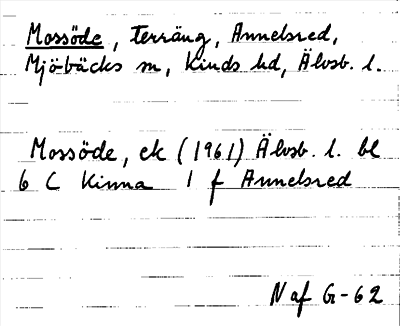 Mossöde, terräng, Annelsred,
Mjöbäcks sn, Kinds hd, Älvsb. l.
Mossöde, ek (1961) Älvsb. l. bl
6 C Kinna 1 f Annelsred
N af G-62